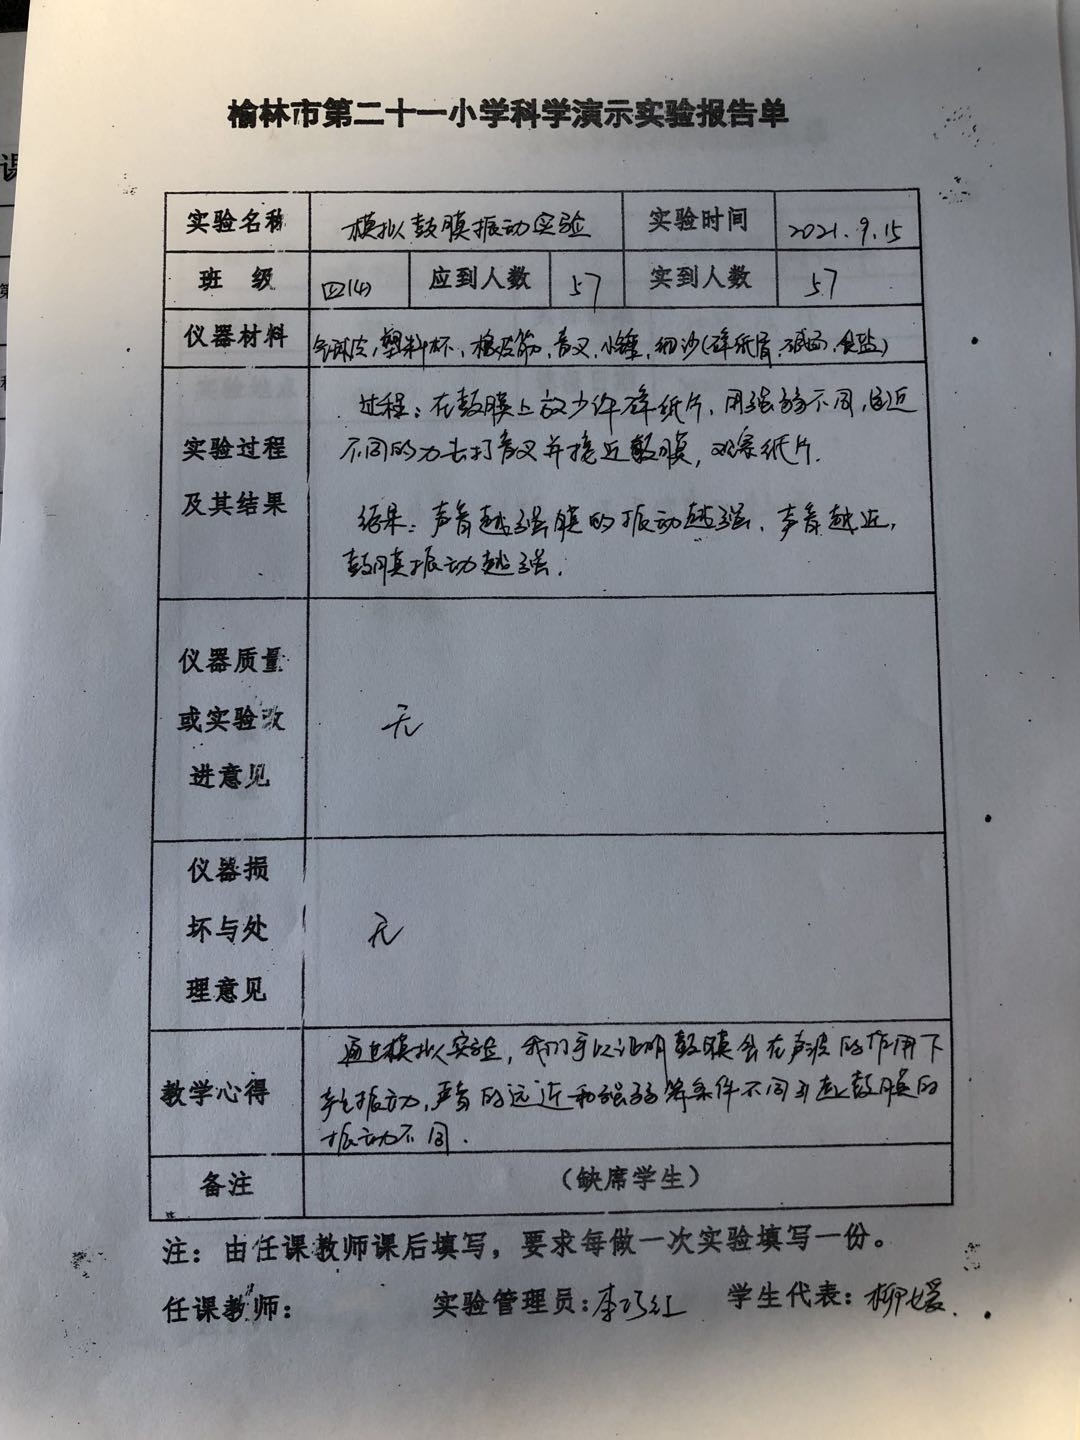 榆林市第二十一小学科学演示实验报告单
实验名称 模拟鼓膜振动实验 实验时间 2021.9.15
班 级 四(4) 应到人数 57 实到人数 57
仪器材料 气球皮,塑料杯、橡皮筋,音叉,小锤,细沙(碎纸屑、食盐)
过程:在鼓膜上放少许碎纸片,用强弱不同,远近
实验过程 不同的力去打音叉并接近鼓膜,观察纸片.
及其结果 结果:声音越强膜的振动越强、声音越近,
鼓膜振动越强.
仪器质量
或实验改 无
进意见
仪器损
坏与处 无
理意见
通过模拟实验,我们可以证明鼓膜会在声波的作用下
教学心得 产生振动,声音的远近和强弱等条件不同引起鼓膜的
振动不同.
备注 (缺席学生)
注:由任课教师课后填写,要求每做一次实验填写一份。
任课教师: 实验管理员:李巧红 学生代表:柳媛
课